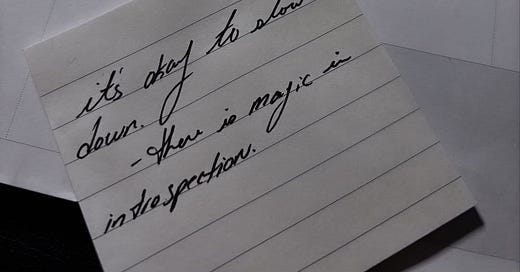 it's okay to slow
down.
- there is magic in
introspection.